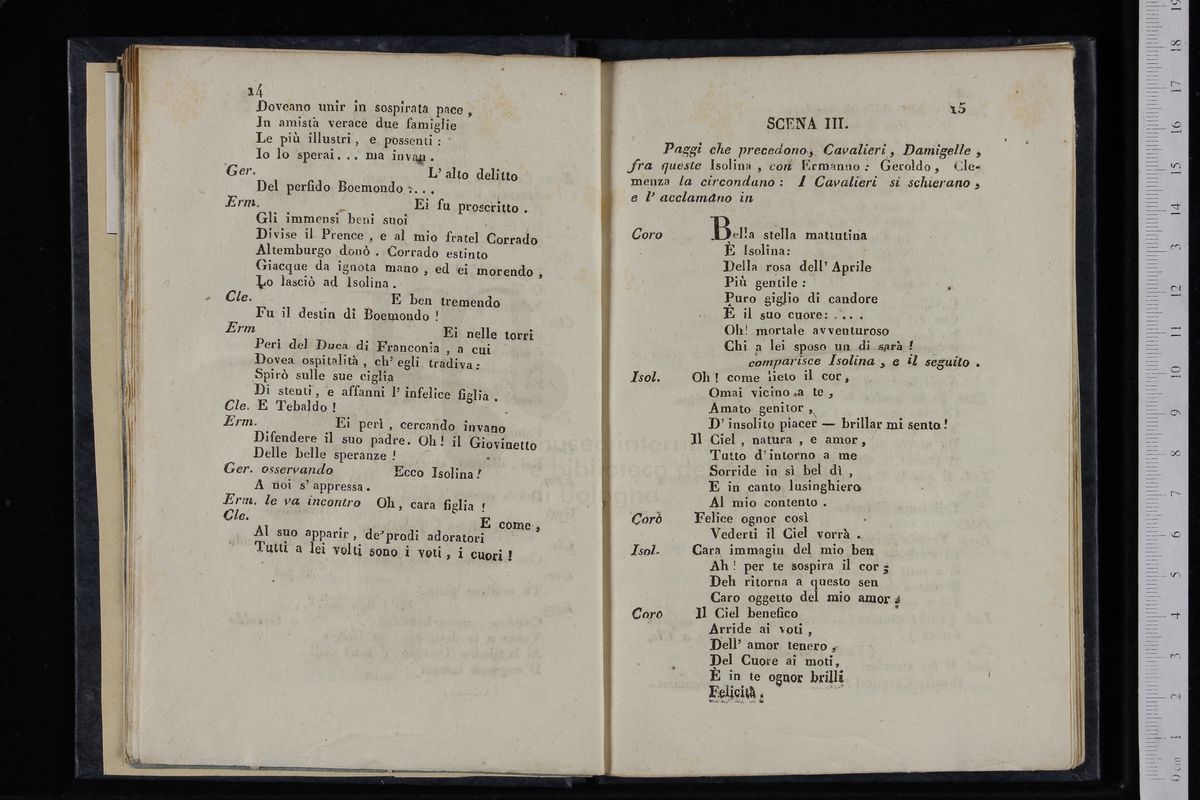 14
Doveano unir in sospirata pace ,
In amistà verace due famiglie
Le più illustri , e possenti :
Io lo sperai. . . ma invan .
Ger. L' alto delitto
Del perfido Boemondo . . . .
Erm. Ei fu proscritto .
Gli immensi beni suoi
Divise il Prence , e al mio fratel Corrado
Altemburgo donò . Corrado estinto
Giacque da ignota mano , ed ei morendo ,
Lo lasciò ad Isolina .
Cle. E ben tremendo
Fu il destin di Boemondo !
Erm Ei nelle torri
Perì del Duca di Franconia , a cui
Dovea ospitalità , ch' egli tradiva :
Spirò sulle sue ciglia
Di stenti , e affanni l' infelice figlia .
Cle. E Tebaldo !
Erm. Ei perì , cercando invano
Difendere il suo padre. Oh ! il Giovinetto
Delle belle speranze !
Ger. osservando Ecco Isolina !
A noi s' appressa .
Erm. le va incontro Oh , cara figlia !
Cle. E come ,
Al suo apparir , de' prodi adoratori
Tutti a lei volti sono i voti , i cuori !
15
SCENA III.
Paggi che precedono , Cavalieri , Damigelle ,
fra queste Isolina , con Ermanno : Geroldo , Cle-
menza la circondano : I Cavalieri si schierano ,
e l' acclamano in
Coro Bella stella mattutina
È Isolina :
Della rosa dell' Aprile
Più gentile :
Puro giglio di candore
È il suo cuore : . . . .
Oh ! mortale avventuroso
Chi a lei sposo un dì sarà !
comparisce Isolina , e il seguito .
Isol. Oh ! come lieto il cor ,
Omai vicino a te ,
Amato genitor ,
D' insolito piacer — brillar mi sento !
Il Ciel , natura , e amor ,
Tutto d' intorno a me
Sorride in sì bel dì ,
E in canto lusinghiero
Al mio contento .
Coro Felice ognor così
Vederti il Ciel vorrà .
Isol- Cara immagin del mio ben
Ah ! per te sospira il cor ;
Deh ritorna a questo sen
Caro oggetto del mio amor .
Coro Il Ciel benefico
Arride ai voti ,
Dell' amor tenero ,
Del Cuore ai moti ,
È in te ognor brilli
Felicità .
museo
biblioteca de
di bologna
0 cm 1 2 3 4 5 6 7 8 9 10 11 12 13 14 15 16 17 18 19